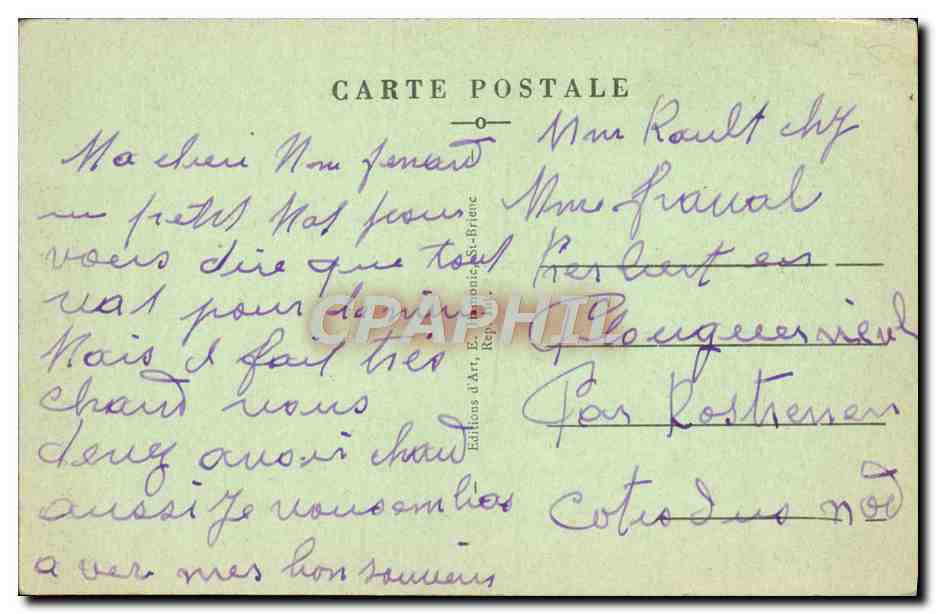 CARTE POSTALE
Ma cheri Mm fenard
un petit Mot pour
vous dire que tout
vat pour
Mais il fait très
chaud vous
devez avoir chaud
aussi Je vous embras
a ver mes bon souvenir
Editions d'Art, E. Hamonic, St-Brieuc
Rep. int.
Mm Rault chz
Mme fraval
Kerlbert en
Plouguernével
Par Rostrenen
Cotes Dus nod
CPAPHIL